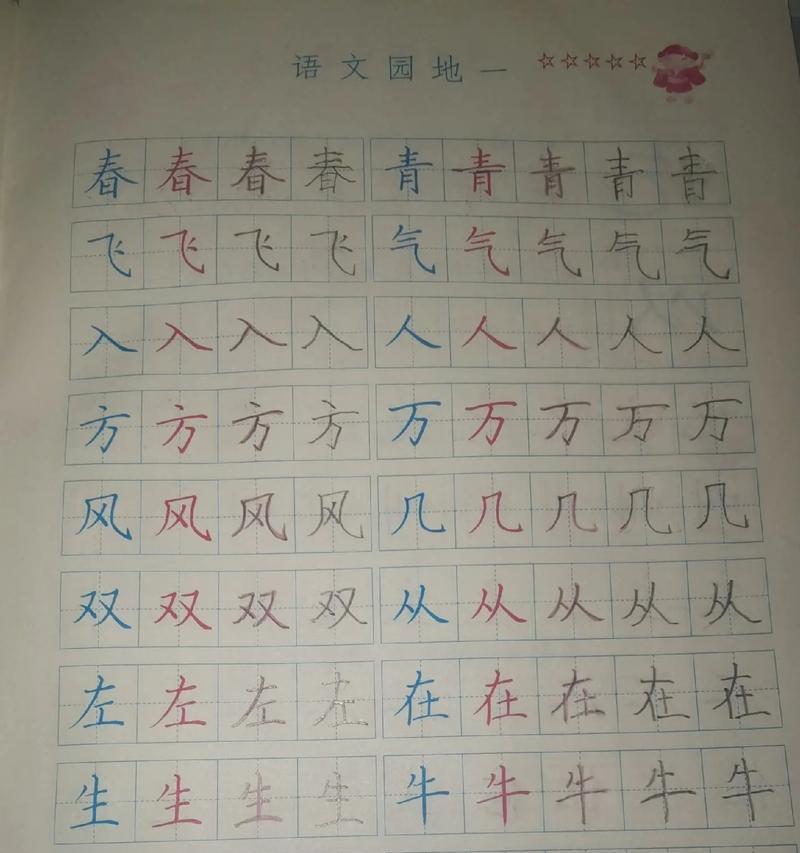 语文园地一 ☆☆☆☆☆
春春春春 青青青青青
飞飞飞飞 气气气气气
入入入入 人人人人人
方方方方 万万万万万
风风风风 几几几几几
双双双双 从从从从从
左左左左 在在在在在
生生生生 牛牛牛牛牛